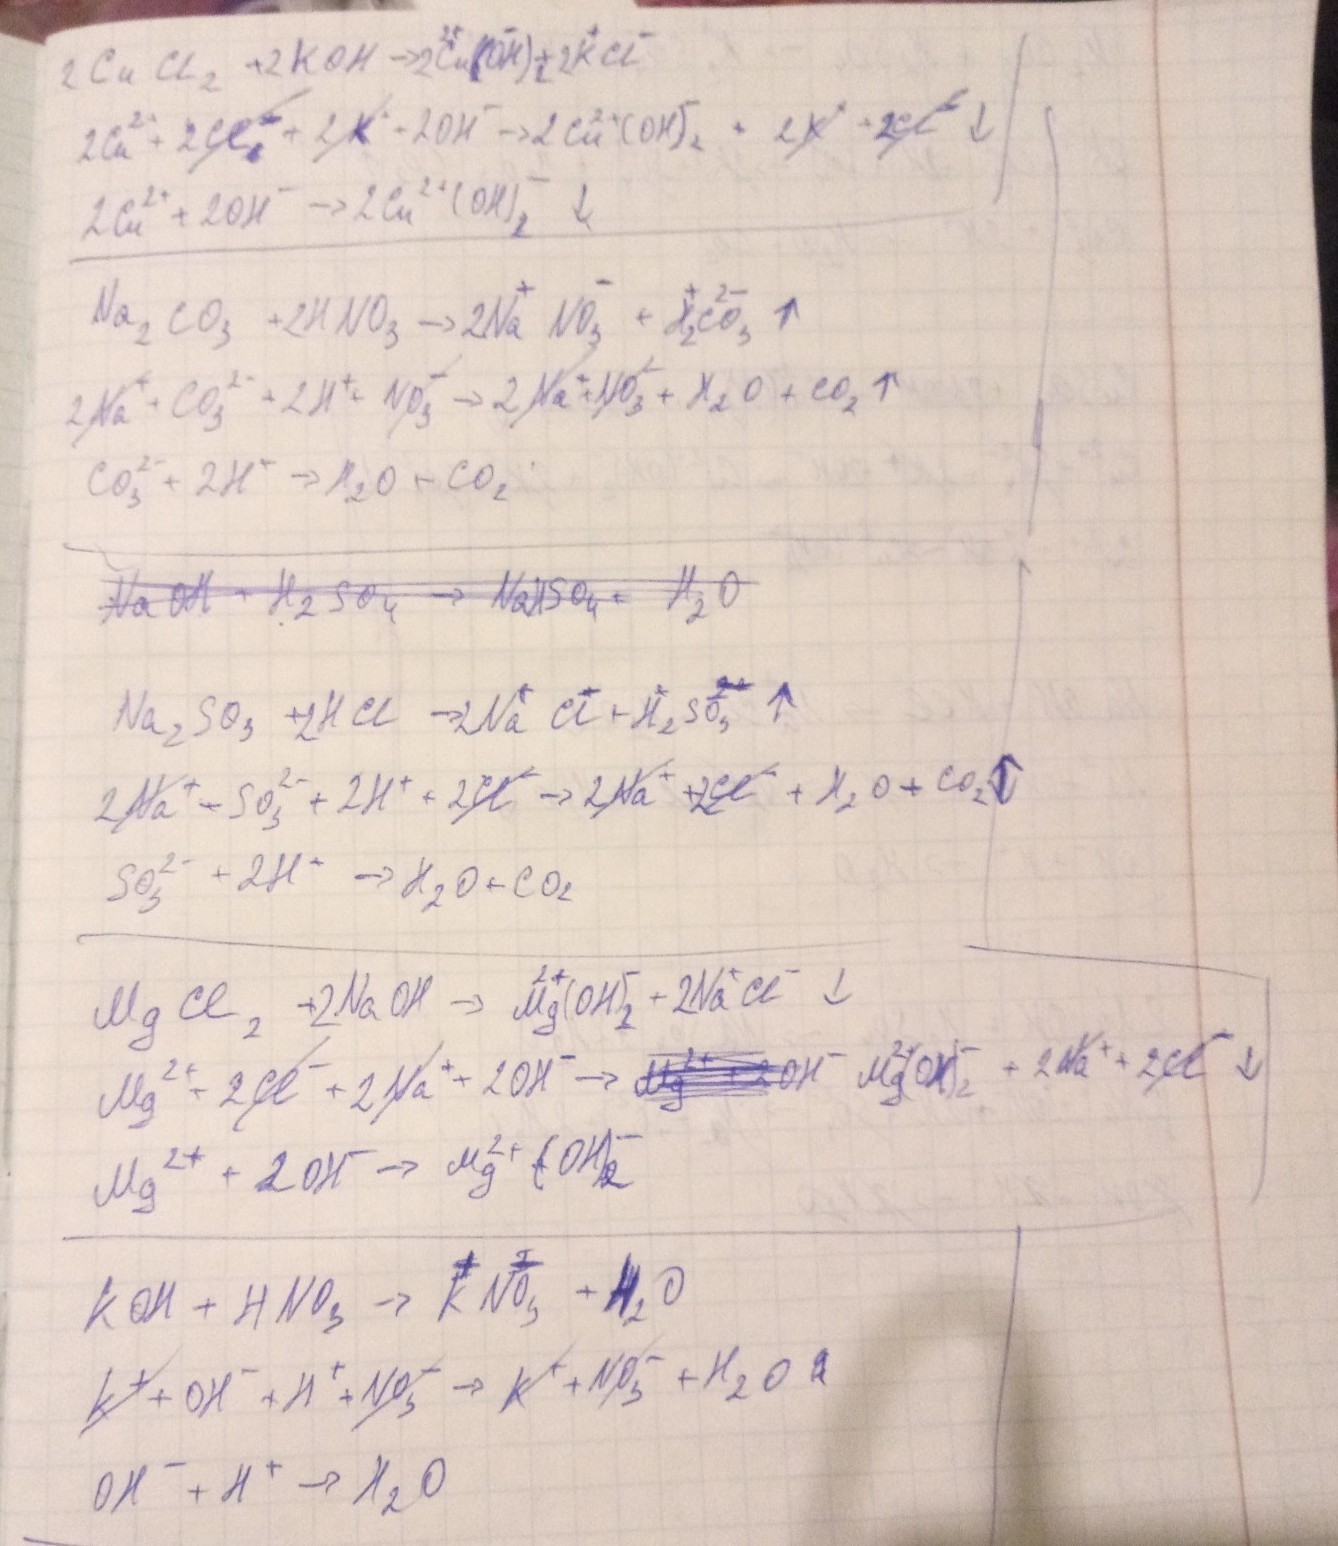 2CuCl₂ + 2KOH → 2Cu²⁺(OH)⁻₂ + 2K⁺Cl⁻
2Cu²⁺ + 2Cl⁻ + 2K⁺ + 2OH⁻ → 2Cu²⁺(OH)⁻₂ + 2K⁺ + 2Cl⁻ ↓
2Cu²⁺ + 2OH⁻ → 2Cu²⁺(OH)₂⁻ ↓
Na₂CO₃ + 2HNO₃ → 2Na⁺NO₃⁻ + H₂⁺CO₃²⁻ ↑
2Na⁺ + CO₃²⁻ + 2H⁺ + NO₃⁻ → 2Na⁺ + NO₃⁻ + H₂O + CO₂ ↑
CO₃²⁻ + 2H⁺ → H₂O + CO₂
NaOH + H₂SO₄ → NaHSO₄ + H₂O
Na₂SO₃ + 2HCl → 2Na⁺Cl + H₂⁺SO₃ ↑
2Na⁺ + SO₃²⁻ + 2H⁺ + 2Cl⁻ → 2Na⁺ + 2Cl⁻ + H₂O + CO₂ ↑
SO₃²⁻ + 2H⁺ → H₂O + CO₂
MgCl₂ + 2NaOH → Mg²⁺(OH)₂⁻ + 2Na⁺Cl⁻ ↓
Mg²⁺ + 2Cl⁻ + 2Na⁺ + 2OH⁻ → Mg²⁺ + 2OH⁻ Mg²⁺(OH)₂⁻ + 2Na⁺ + 2Cl⁻ ↓
Mg²⁺ + 2OH⁻ → Mg²⁺(OH)₂⁻
KOH + HNO₃ → KNO₃ + H₂O
K⁺ + OH⁻ + H⁺ + NO₃⁻ → K⁺ + NO₃⁻ + H₂O
OH⁻ + H⁺ → H₂O